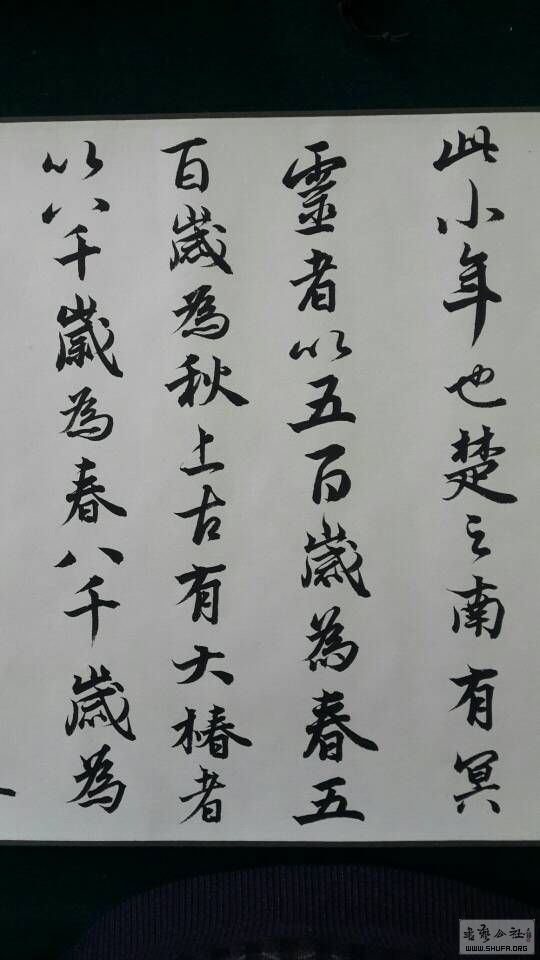 此小年也楚之南有冥
靈者以五百歲為春五
百歲為秋上古有大椿者
以八千歲為春八千歲為
書藝公社
WWW.SHUFA.ORG